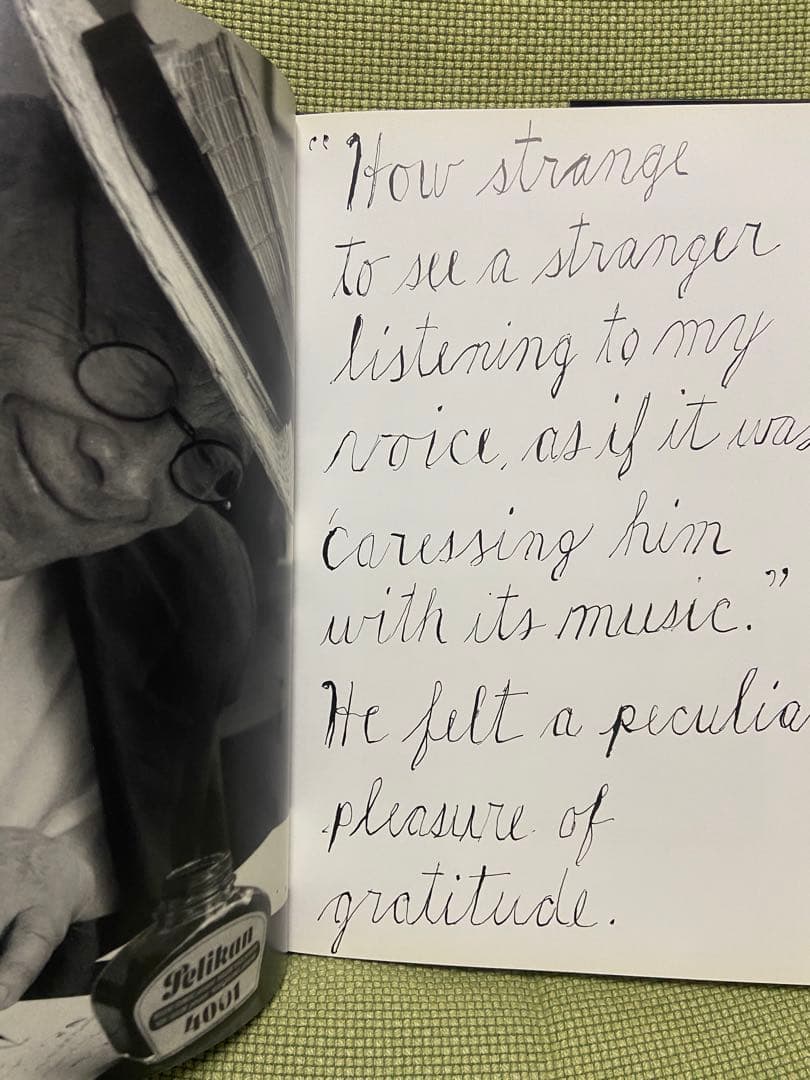 Pelikan
4001
“How strange
to see a stranger
listening to my
voice, as if it was
caressing him
with its music.”
He felt a peculia
pleasure of
gratitude.